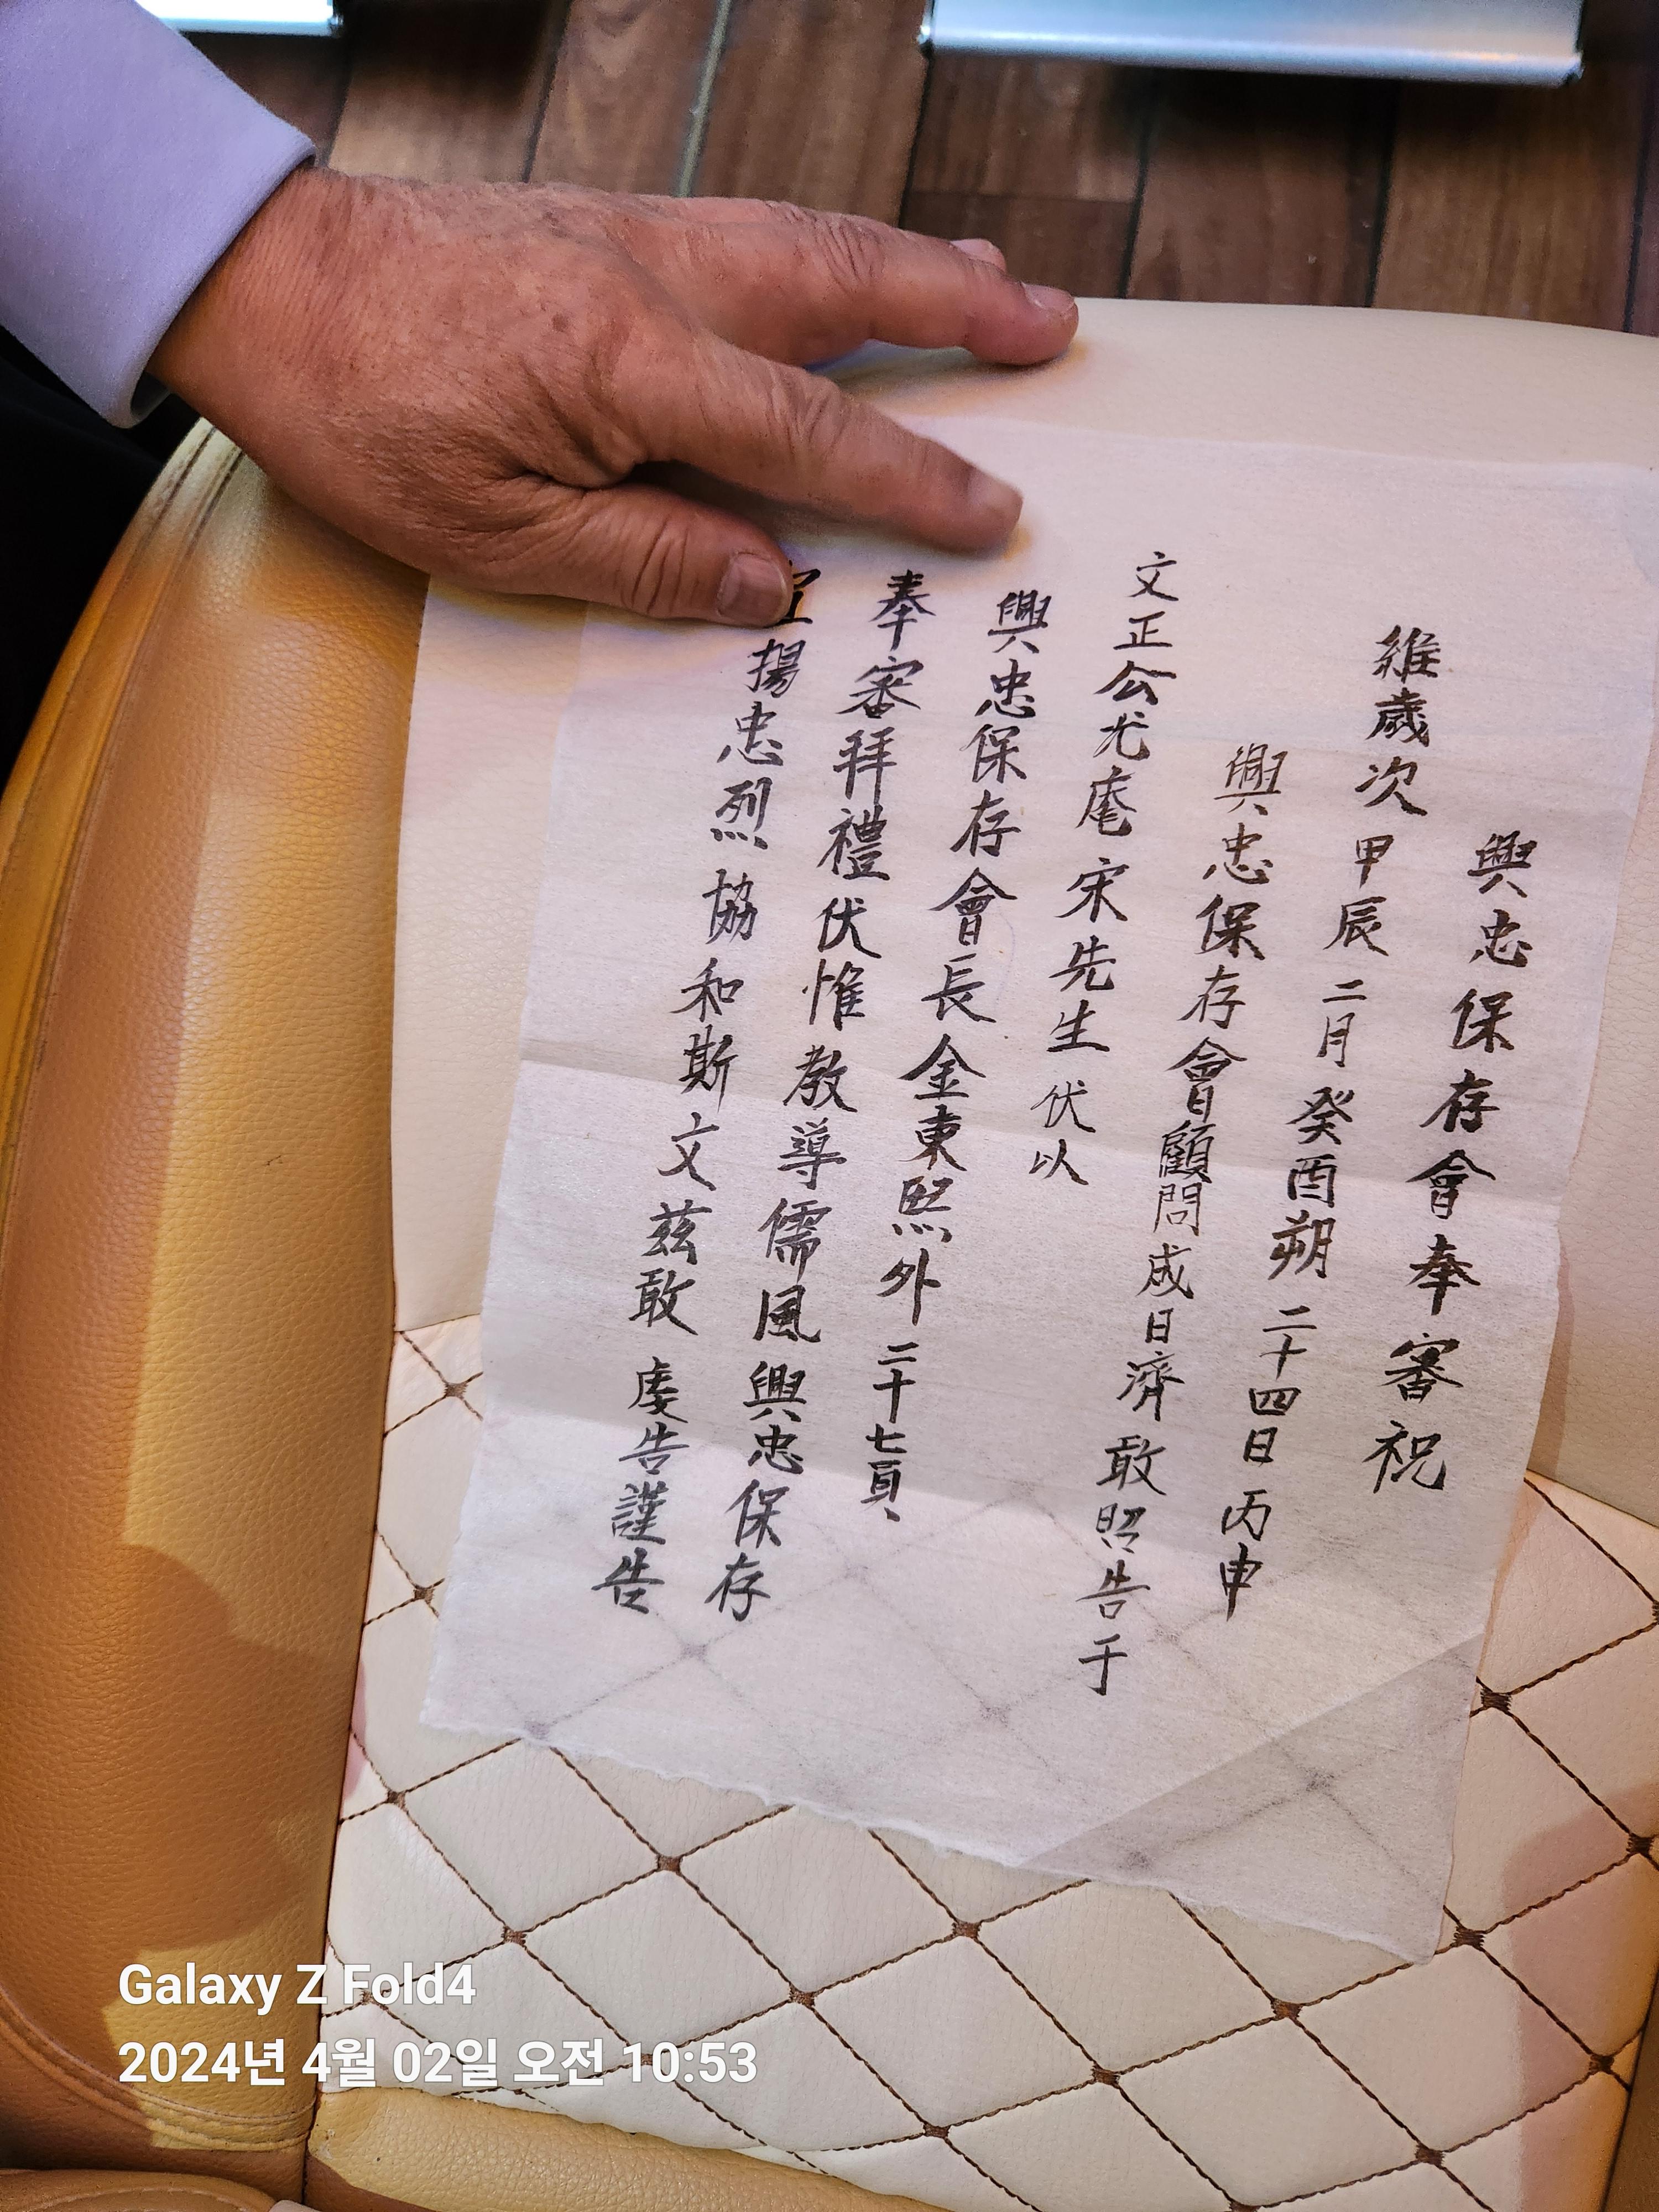 興忠保存會奉審祝
維歲次甲辰二月癸酉朔二十四日丙申
興忠保存會顧問成日濟敢昭告于
文正公尤庵宋先生伏以
興忠保存會長金東熙外二十七員、
奉審拜禮伏惟教導儒風興忠保存
宣揚忠烈協和斯文玆敢虔告謹告
Galaxy Z Fold4
2024년 4월 02일 오전 10:53